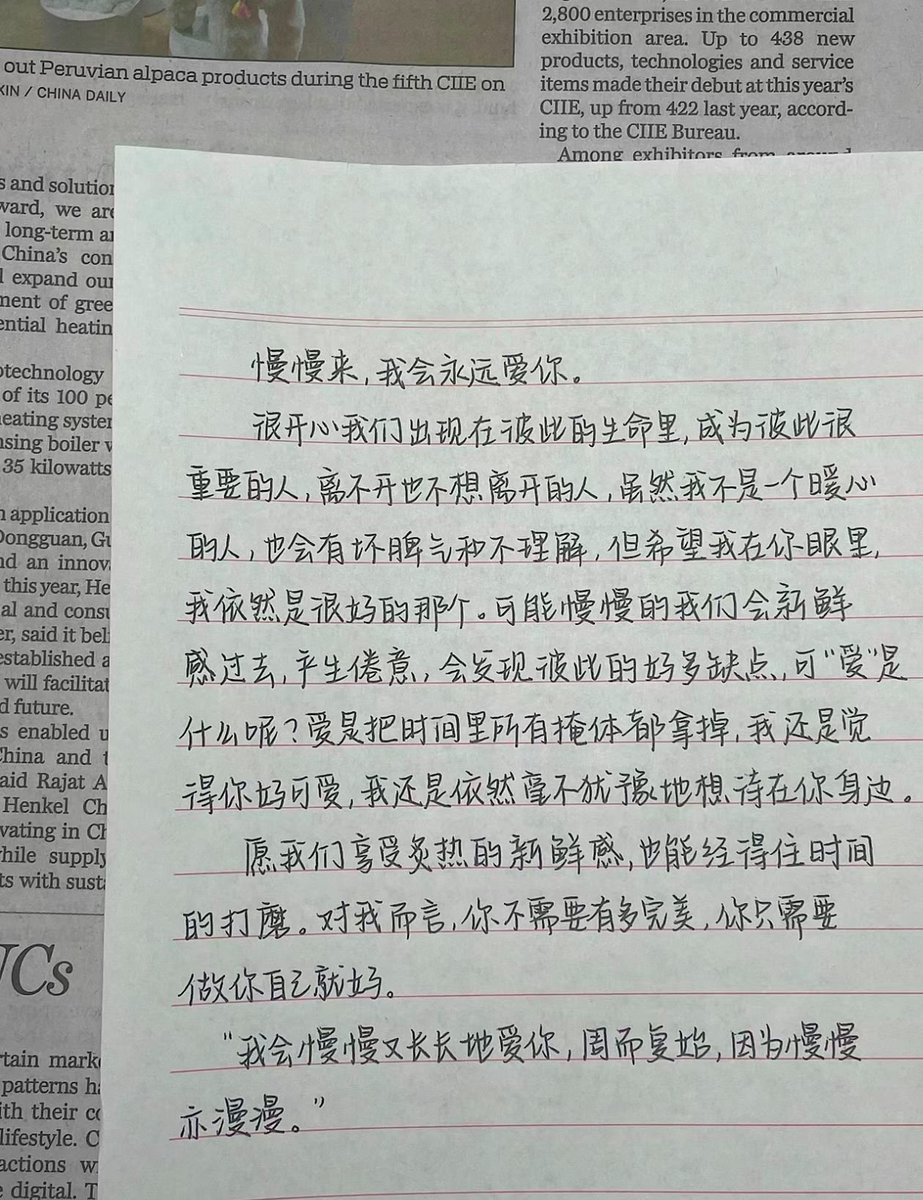 out Peruvian alpaca products during the fifth CIIE on
XIN / CHINA DAILY
2,800 enterprises in the commercial
exhibition area. Up to 438 new
products, technologies and service
items made their debut at this year's
CIIE, up from 422 last year, accord-
ing to the CIIE Bureau.
Among exhibitors from around
s and solution
ward, we are
long-term a
China's con
l expand our
ment of gree
ential heatin
otechnology
of its 100 pe
heating system
nsing boiler
35 kilowatts
n application
Dongguan, Gu
nd an innov
this year, He
al and consu
er, said it bel
established a
will facilitat
d future.
s enabled u
China and t
said Rajat A
Henkel Ch
vating in Ch
while supply
ts with susta
VCs
rtain mark
patterns ha
ith their co
lifestyle. C
actions w
e digital. T
慢慢来,我会永远爱你。
很开心我们出现在彼此的生命里,成为彼此很
重要的人,离不开也不想离开的人,虽然我不是一个暖心
的人,也会有坏脾气和不理解,但希望我在你眼里,
我依然是很好的那个。可能慢慢的我们会新鲜
感过去,产生倦意,会发现彼此的好多缺点,可“爱”是
什么呢?爱是把时间里所有掩体都拿掉,我还是觉
得你好可爱,我还是依然毫不犹豫地想待在你身边。
愿我们享受炙热的新鲜感,也能经得住时间
的打磨。对我而言,你不需要有多完美,你只需要
做你自己就好。
“我会慢慢又长长地爱你,周而复始,因为慢慢
亦漫漫。”